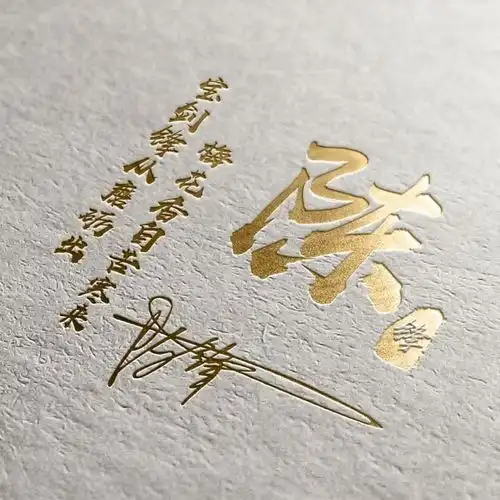 宝剑锋从磨砺出
梅花香自苦寒来
陈
锋